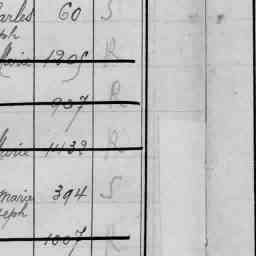 arles 60 S
ph
Marie 1205 R
937 R
Marie 1132 R
Marie 394 S
seph
1007 R